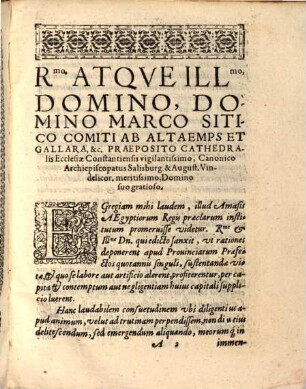 Rmo, ATQVE ILLmo,
DOMINO, DO-
MINO MARCO SITI-
CO COMITI AB ALTAEMPS ET
GALLARA, &c. PRAEPOSITO CATHEDRA-
lis Ecclesiæ Constantiensis vigilantissimo, Canonico
Archiepiscopatus Salisburg. & August. Vin-
delicor. meritissimo, Domino
suo gratioso,
EGregiam mihi laudem, illud Amasis
AEgyptiorum Regis præclarum insti-
tutum promeruisse videtur. Rme &
Illme Dn. qui edicto sanxit, vt rationes
deponerent apud Prouinciarum Præfe-
ctos quotannis singuli, sustentandæ vi-
tæ, & quo se labore aut artificio alerent, profiterentur, per ca-
pita & contemptum aut negligentiam huius capitali suppli-
cio luerent.
Hanc laudabilem consuetudinem vbi diligentius a-
pud animum, velut ad trutinam perpendissem, non diu eius
delitescendum, sed emergendum aliquando, meorumque in
A 2 immen-